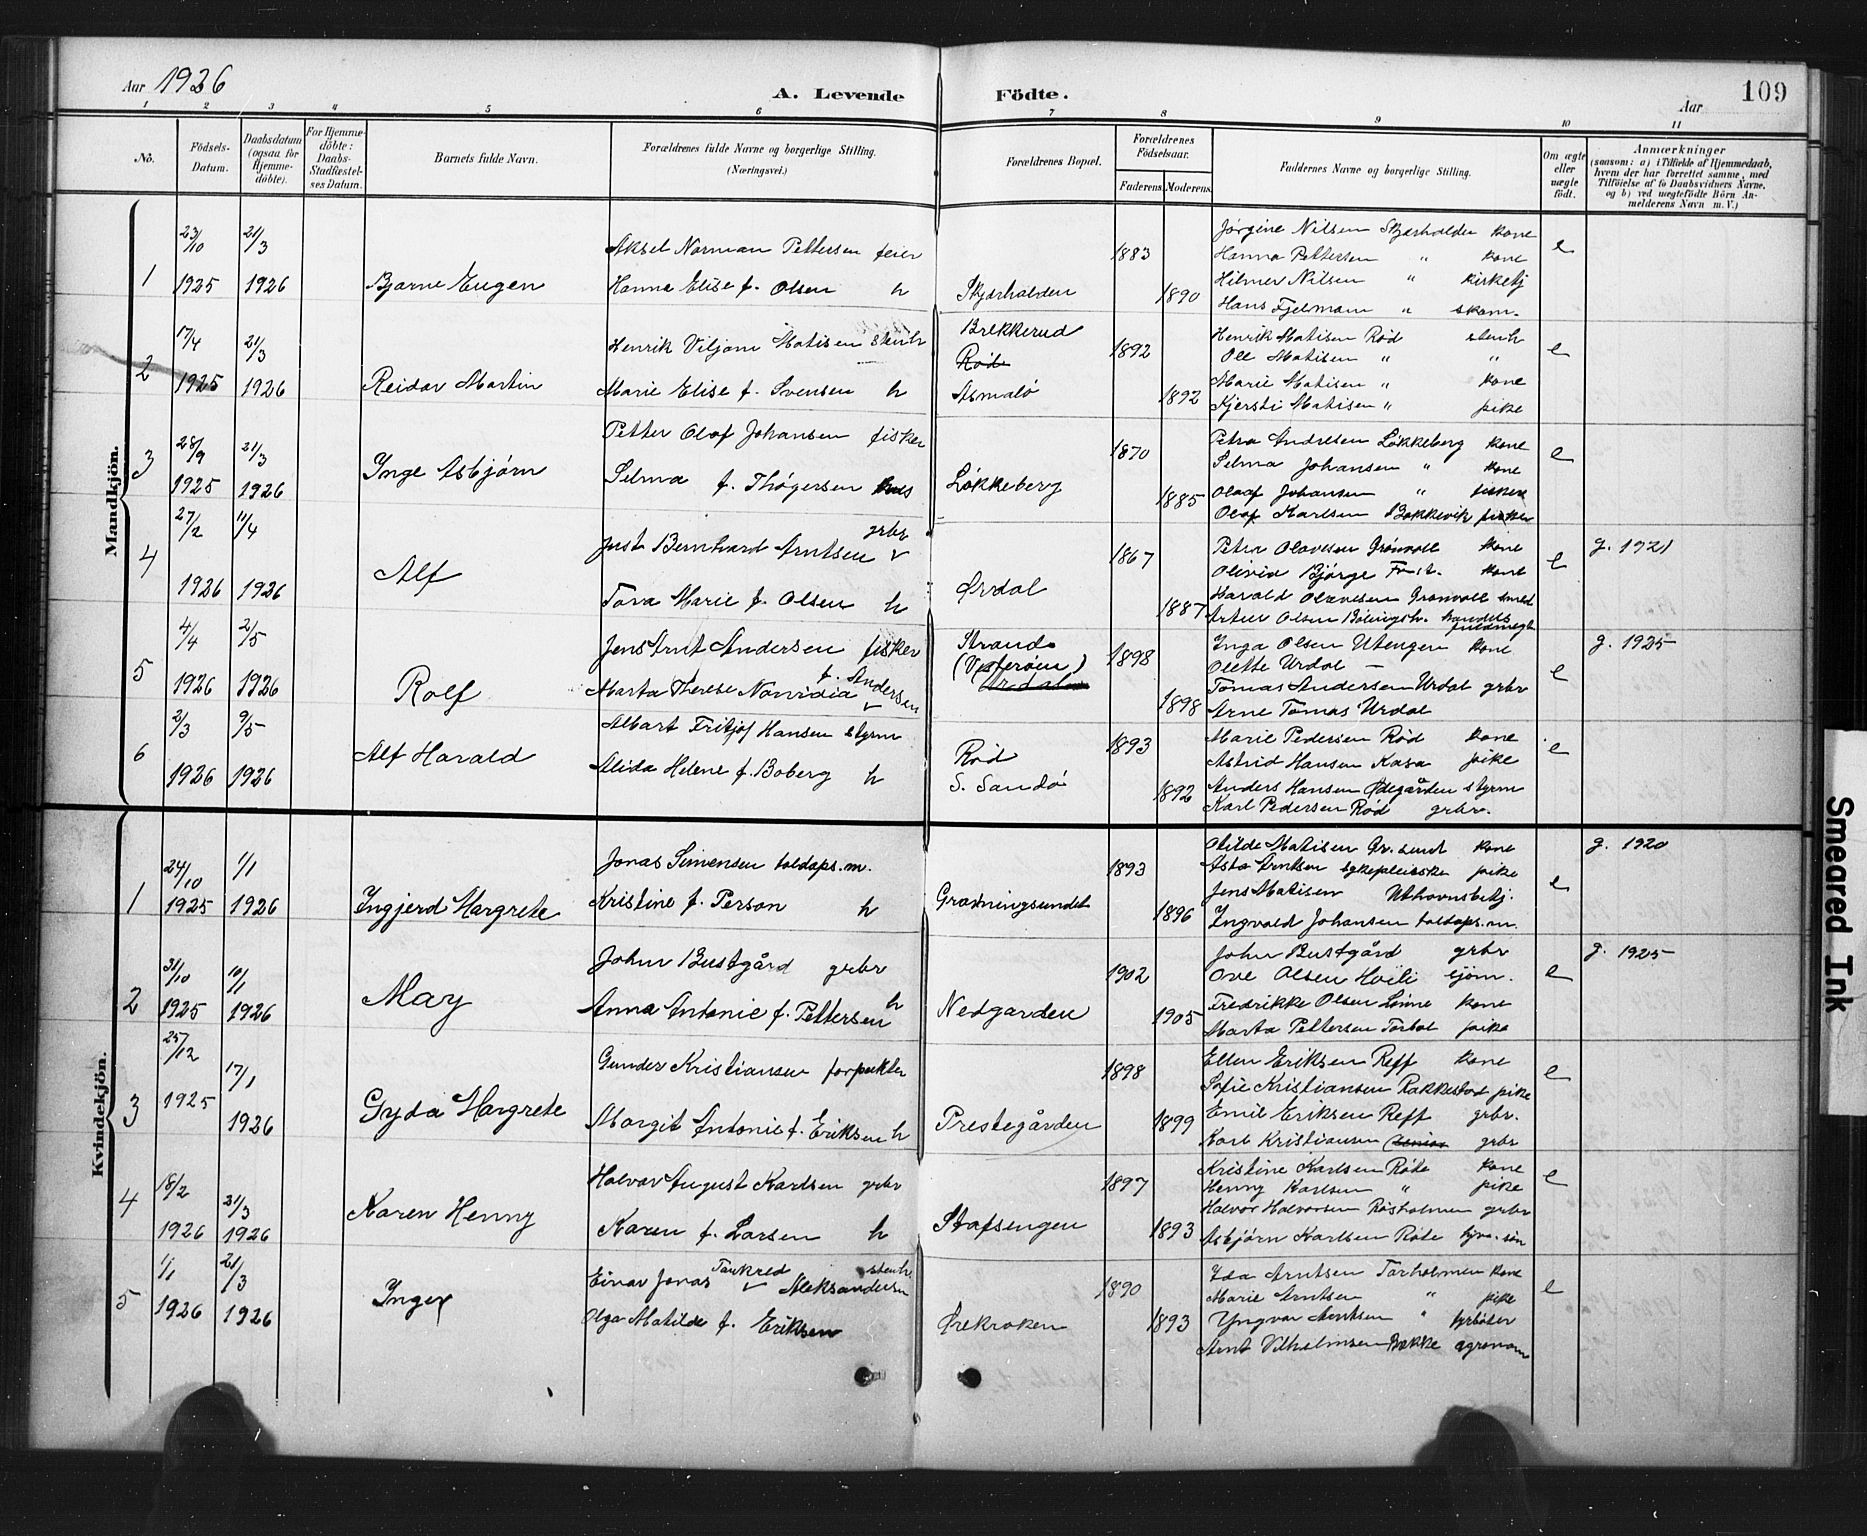 Aar 1926
A. Levende Födte.
Aar
109
1 2 3 4 5 6 7 8 9 10 11
No.
Födsels-Datum.
Daabsdatum (ogsaa for Hjemme-döbte).
For Hjemme-döbte: Daabs-Stadfæstel-ses Datum.
Barnets fulde Navn.
Forældrenes fulde Navne og borgerlige Stilling. (Næringsvei.)
Forældrenes Bopæl.
Forældrenes Födselsaar.
Faderens. Moderens.
Faddernes Navne og borgerlige Stilling.
Om ægte eller uægte födt.
Anmærkninger
(saasom: a) i Tilfælde af Hjemmedaab, hvem der har forrettet samme, med Tilföielse af to Daabsvidners Navne, og b) ved uægtefödte Börn An-melderens Navn m. V.)
Mandkjön.
1
23/10 1925
21/3 1926
Bjarne Eugen
Aksel Norman Pettersen feier
Hanna Elise f. Olsen h
Skjærhalden
1883
1890
Jørgine Nilsen Skjærhalden kone
Hanna Pettersen " kone
Hilmer Nilsen " kirketj
Hans Fjelmann " skom.
e
2
17/4 1925
21/3 1926
Reidar Martin
Henrik Viljam Matisen stenh
Marie Elise f. Svensen h
Brekkerud
Rød
Asmalø
1892
1892
Henrik Matisen Rød stenh
Ole Matisen " "
Marie Matisen " kone
Kjersti Matisen " pike
e
3
28/9 1925
21/3 1926
Inge Asbjørn
Petter Olaf Johansen fisker
Selma f. Thøgersen hus
Løkkeberg
1870
1885
Petra Andresen Løkkeberg kone
Selma Johansen " kone
Olaf Johansen " fisker
Olaf Karlsen Bakkevik fisker
e
4
27/2 1926
11/4 1926
Alf
Just Bernhard Arntsen grbr
Tora Marie f. Olsen h
Ørdal
1867
1887
Petra Olavesen Grønvoll kone
Olivia Bjørge Fr.st. kone
Harald Olavesen Grønvoll smed
Artur Olsen handelsfuldmegt
e
g. 1921
5
4/4 1926
2/5 1926
Rolf
Jens Arnt Andersen fisker
Marta Therese Narvidia f. Andersen
Strand
(Vesterøen)
1898
1898
Inga Olsen Utengen kone
Olette Urdal —
Tomas Andersen Urdal grbr
Arne Tomas Urdal
e
g. 1925
6
2/3 1926
9/5 1926
Alf Harald
Albart Fritjof Hansen styrm
Alida Helene f. Boberg h
Rød
S. Sandø
1893
1892
Marie Pedersen Rød kone
Astrid Hansen Kasa pike
Anders Hansen Ødegården styrm
Karl Pedersen Rød grbr.
e
Kvindekjön.
1
24/10 1925
1/1 1926
Ingjerd Margrete
Jonas Simensen toldops.m.
Kristine f. Person h
Gravningsundet
1893
1896
Otilde Matisen Gr. sund kone
Asta Arntsen sykepleierske pike
Jens Matisen Uthavnsbetj.
Ingvald Johansen toldops.m.
e
g. 1920
2
31/10 1925
10/1 1926
May
John Bustgård grbr
Anna Antonie f. Pettersen h
Nedgarden
1902
1905
John Bustgård grbr
Ove Olsen Hvili sjøm.
Fredrikke Olsen Linne kone
Marta Pettersen pike
e
g. 1925
3
25/12 1925
17/1 1926
Gyda Margrete
Gunder Kristiansen forpakter
Margit Antonie f. Eriksen h
Prestegården
1898
1899
Ellen Eriksen Reff kone
Sofie Kristiansen Rakkestad pike
Emil Eriksen Reff grbr.
Karl Kristiansen grbr
e
4
18/2 1926
21/3 1926
Karen Henny
Halvar August Karlsen grbr
Karen f. Larsen h
Stafsengen
1897
1893
Kristine Karlsen Røte kone
Henny Karlsen " pike
Halvor Halvorsen Røsholmen grbr
Asbjørn Karlsen Røte
e
5
1/1 1926
21/3 1926
Inger
Einar Jonas Tankred Aleksandersen stenh
Olga Matilde f. Eriksen
Ørekroken
1890
1893
Ida Arntsen Tarholmen kone
Marie Arntsen " pike
Yngvar Arntsen " fyrbøter
Arnt Vilhelmsen Bække agronom
e
Smeared Ink